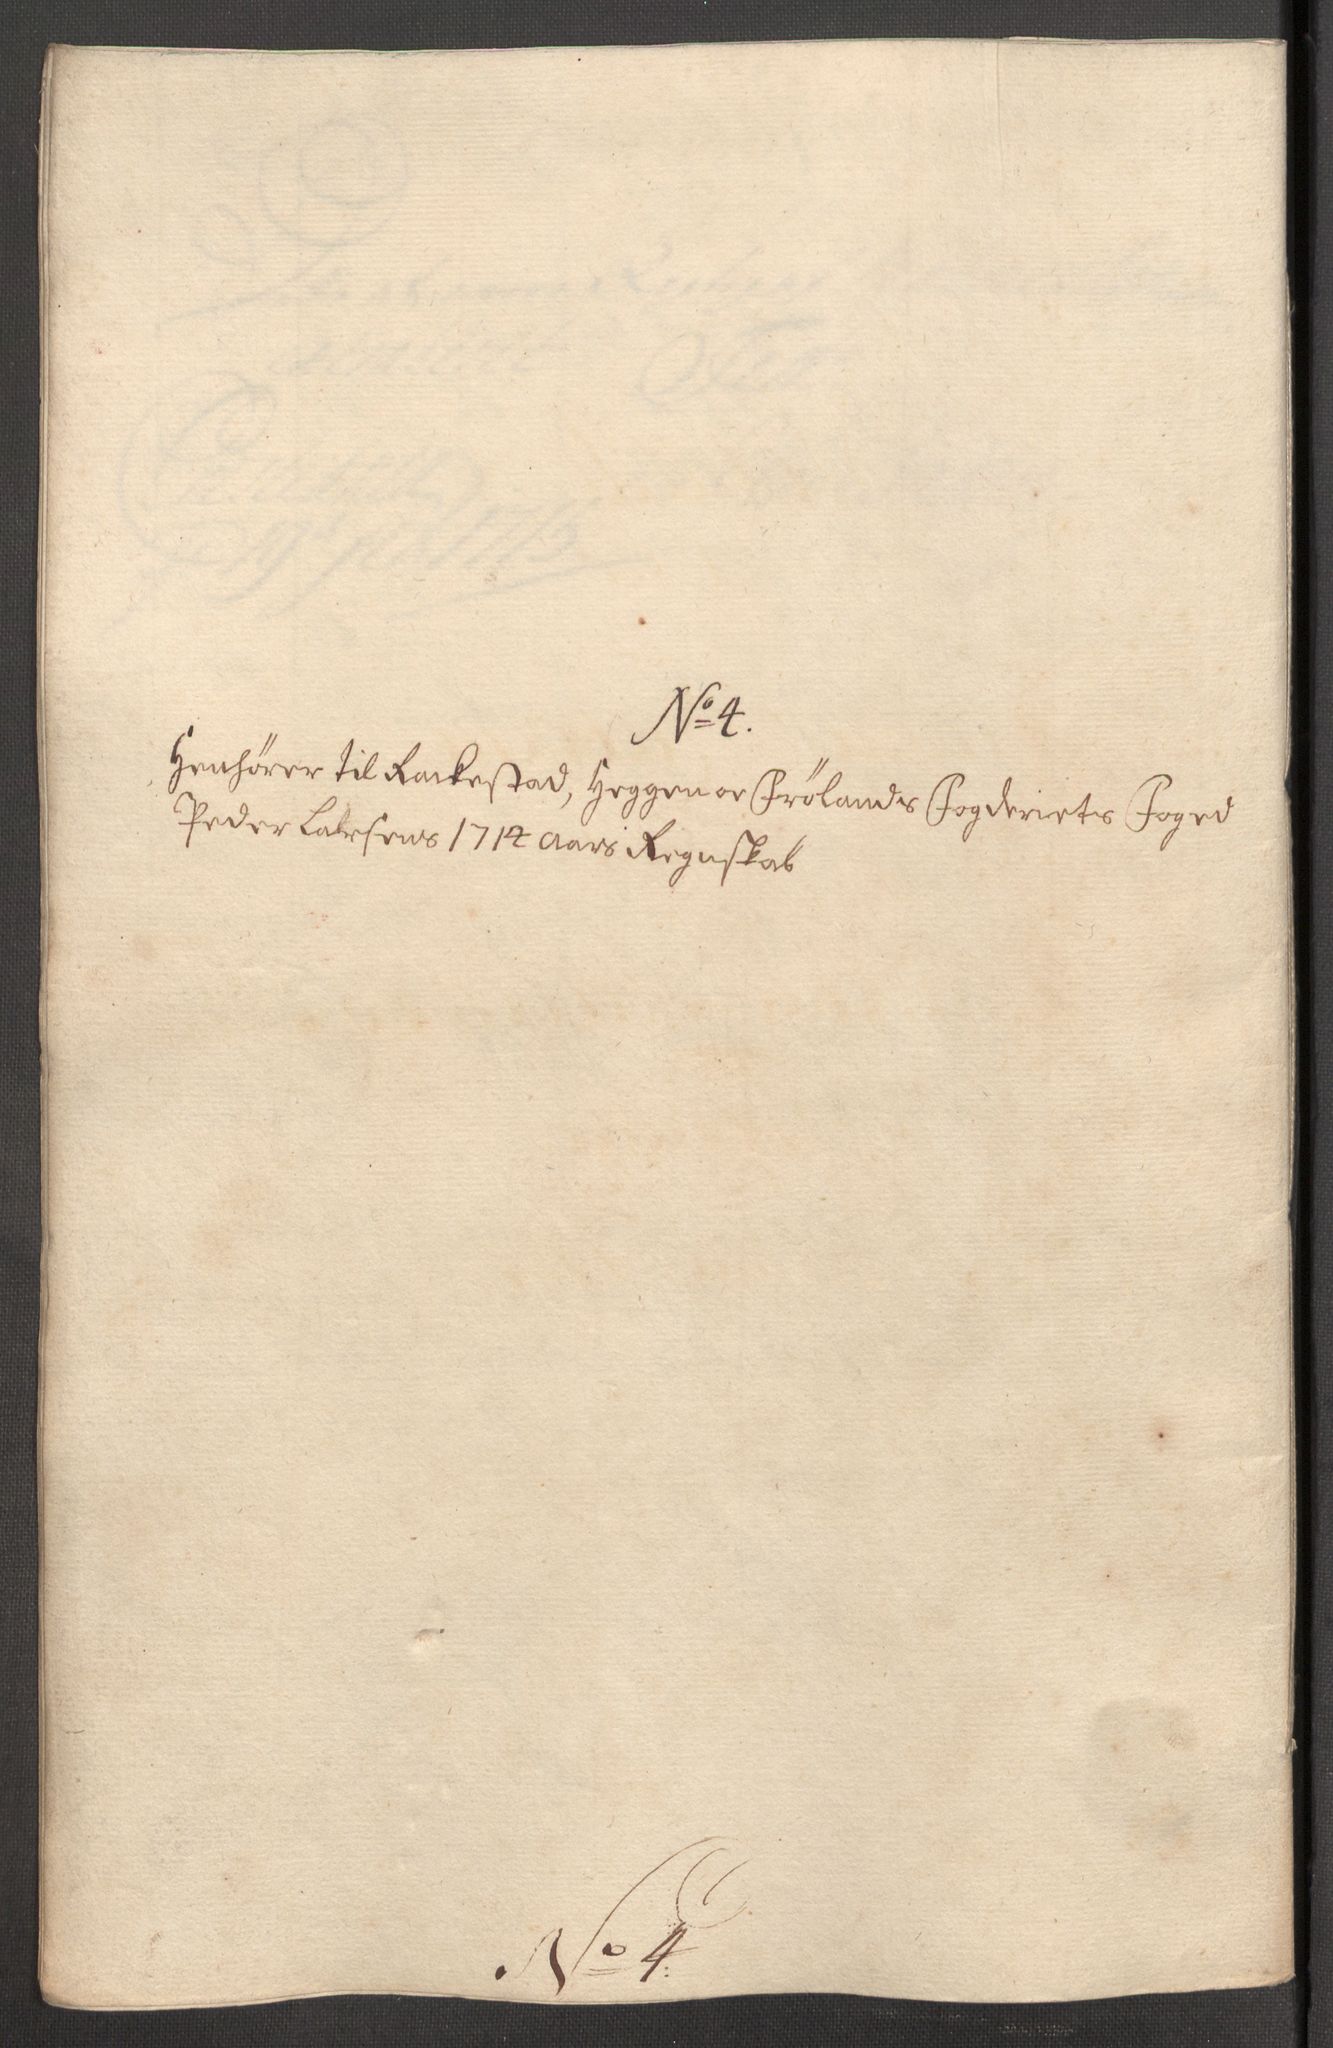 No 4.
Henhører til Rackestad, Heggen oc Frølands Fogderiets Foged
Peder Larsens 1714 aars Regnskab
No 4: